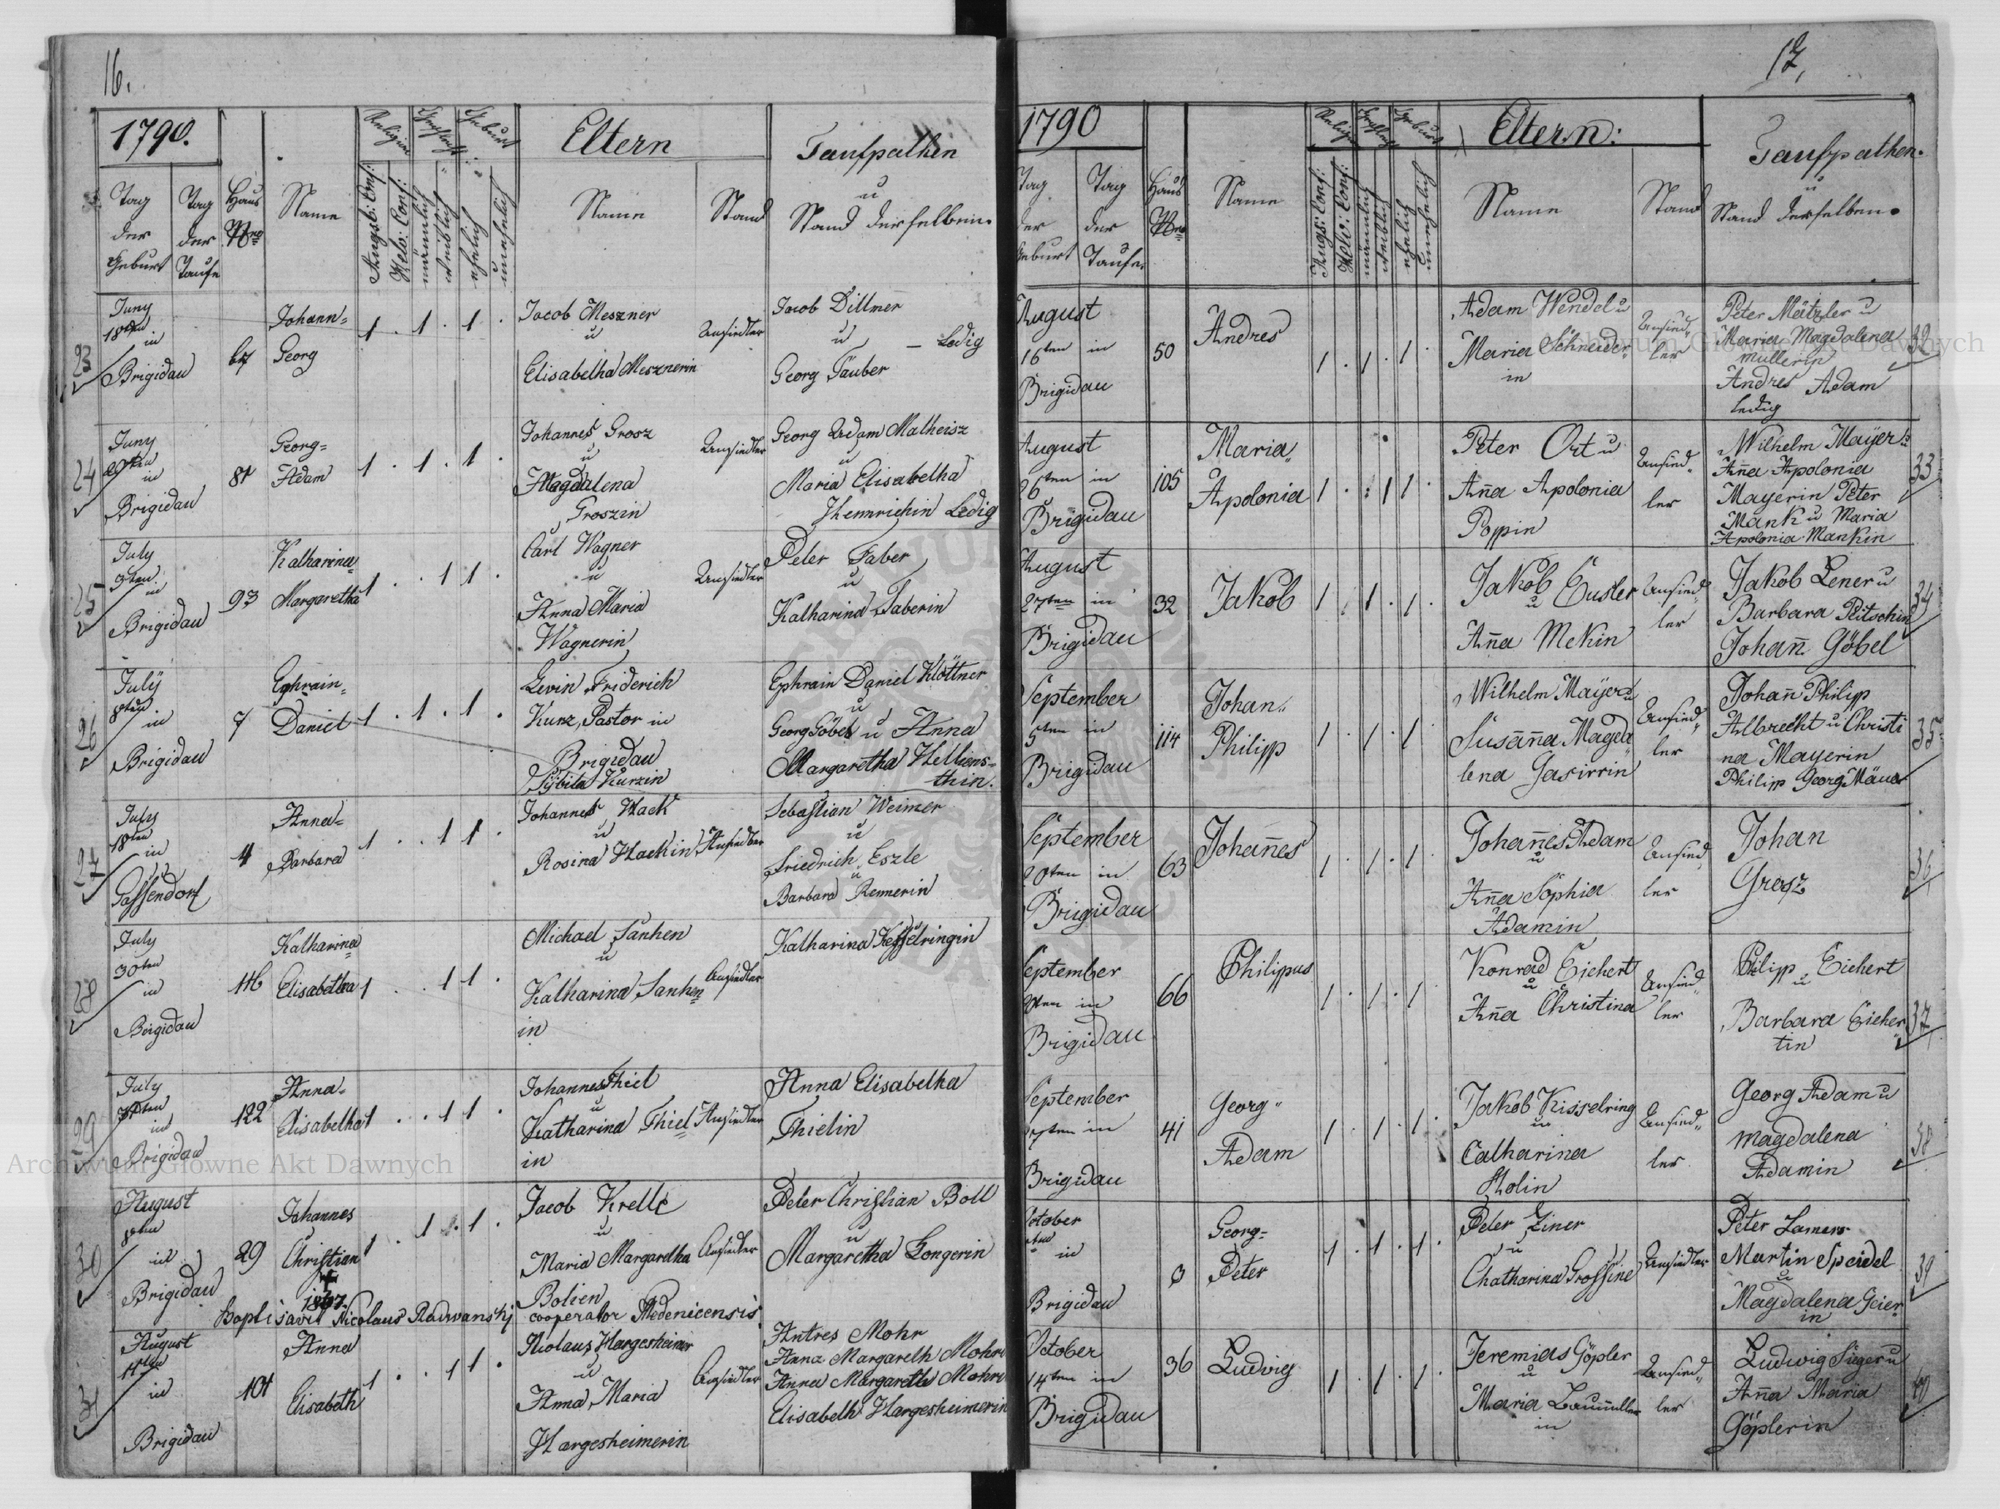 16.
1790.
Religion
Geschlecht
Geburt
Eltern
Taufpathen
u
Stand derselben.
Tag
der
Geburt
Tag
der
Taufe
Haus
Nro
Name
Augsb: Conf:
Helv: Conf:
männlich
weiblich
ehelich
unehelich
Name
Stand
23
Juny
18ten
in
Brigidau
67
Johann=
Georg
1 . 1 . 1 .
Jacob Meszner
u
Elisabetha Mesznerin
Ansiedler
Jacob Dittmer
u
Georg Täuber
— Ledig
24
Juny
29ten
in
Brigidau
81
Georg=
Adam
1 . 1 . 1 .
Johannes Grosz
u
Magdalena
Groszin
Ansiedler
Georg Adam Matheisz
u
Maria Elisabetha
Hennrichin Ledig
25
July
9ten
in
Brigidau
93
Katharina=
Margaretha
1 . . 1 1 .
Carl Wagner
u
Anna Maria
Wagnerin
Ansiedler
Peter Faber
u
Katharina Faberin
26
July
8ten
in
Brigidau
7
Ephrain=
Daniel
1 . 1 . 1 .
Levin Friderich
Kurz, Pastor in
Brigidau
Sybila Kurzin
Ephrain Daniel Klöttner
u
Georg Göbel u Anna
Margaretha Hellens=
thin.
27
July
18ten
in
Gassendorf
4
Anna=
Barbara
1 . . 1 1 .
Johannes Hack
u
Rosina Hackin
Ansiedler
Sebastian Weimer
u
Friedrich Eszle
u
Barbara Rennerin
28
July
30ten
in
Brigidau
116
Katharina=
Elisabetha
1 . . 1 1 .
Michael Janhen
u
Katharina Janhen=
in
Ansiedler
Katharina Kesselringin
29
July
31ten
in
Brigidau
122
Anna=
Elisabetha
1 . . 1 1 .
Johannes Thiel
u
Katharina Thiel=
in
Ansiedler
Anna Elisabetha
Thielin
30
August
8ten
in
Brigidau
29
Johannes
Christian
1 . 1 . 1 .
Jacob Krelle
u
Maria Margaretha
Bolien
Ansiedler
Peter Christian Boll
u
Margaretha Gongerin
1807.
Baptisavit Nicolaus Radwanskj cooperator Medenicensis.
31
August
11ten
in
Brigidau
101
Anna
Elisabeth
1 . . 1 1 .
Nicolaus Hargesheimer
u
Anna Maria
Hargesheimerin
Ansiedler
Antres Mohr
Anna Margareth Mohrin
Anna Margareth Mohrin
Elisabeth Hargesheimerin
17,
1790
Religion
Geschlecht
Geburt
Eltern:
Taufpathen.
u
Stand derselben.
Tag
der
Geburt
Tag
der
Taufe
Haus
Nro
Name
Augs: Conf:
Helv: Conf:
männlich
weiblich
ehelich
unehelich
Name
Stand
August
16ten in
Brigidau
50
Andres
1 . 1 . 1 .
Adam Wendel u
Maria Schneider=
in
Ansied=
ler
Peter Mätzler u
Maria Magdalena
Mullerin
Andres Adam
ledig
32
August
26ten in
Brigidau
105
Maria=
Apolonia
1 . . 1 1 .
Peter Ort u
Aña Apolonia
Poppin
Ansied=
ler
Wilhelm Mayer u
Aña Apolonia
Mayerin Peter
Mank u Maria
Apolonia Mankin
33
August
27ten in
Brigidau
32
Jakob
1 . 1 . 1 .
Jakob Eusler
u
Aña Mekin
Ansied=
ler
Jakob Lener u
Barbara Pitschin
Johañ Göbel
34
September
5ten in
Brigidau
114
Johan=
Philipp
1 . 1 . 1 .
Wilhelm Mayer u
Susaña Magda
lena Gasirrin
Ansied=
ler
Johañ Philipp
Albrecht u Christi
na Mayerin
Philipp Georg Mäner
35
September
20ten in
Brigidau
63
Johañes
1 . 1 . 1 .
Johañes Adam
u
Aña Sophia
Adamin
Ansied
ler
Johan
Grosz
36
September
in
Brigidau
66
Philippus
1 . 1 . 1 .
Konrad Eichert
u
Aña Christina
Ansied=
ler
Philipp Eichert
u
Barbara Eicher
tin
37
September
in
Brigidau
41
Georg=
Adam
1 . 1 . 1 .
Jakob Kisselring
u
Catharina
Holin
Ansied=
ler
Georg Adam u
Magdalena
Adamin
38
October
in
Brigidau
3
Georg=
Peter
1 . 1 . 1 .
Peter Einer
u
Chatharina Grossine
Ansiedler
Peter Lamers
Martin Speidel
u
Magdalena Geier=
in
39
October
14ten in
Brigidau
36
Ludwig
1 . 1 . 1 .
Jeremias Göpler
u
Maria Baumuller
in
Ansied=
ler
Ludwig Sieger u
Aña Maria
Göplerin
40
Archiwum Główne Akt Dawnych
Archiwum Główne Akt Dawnych